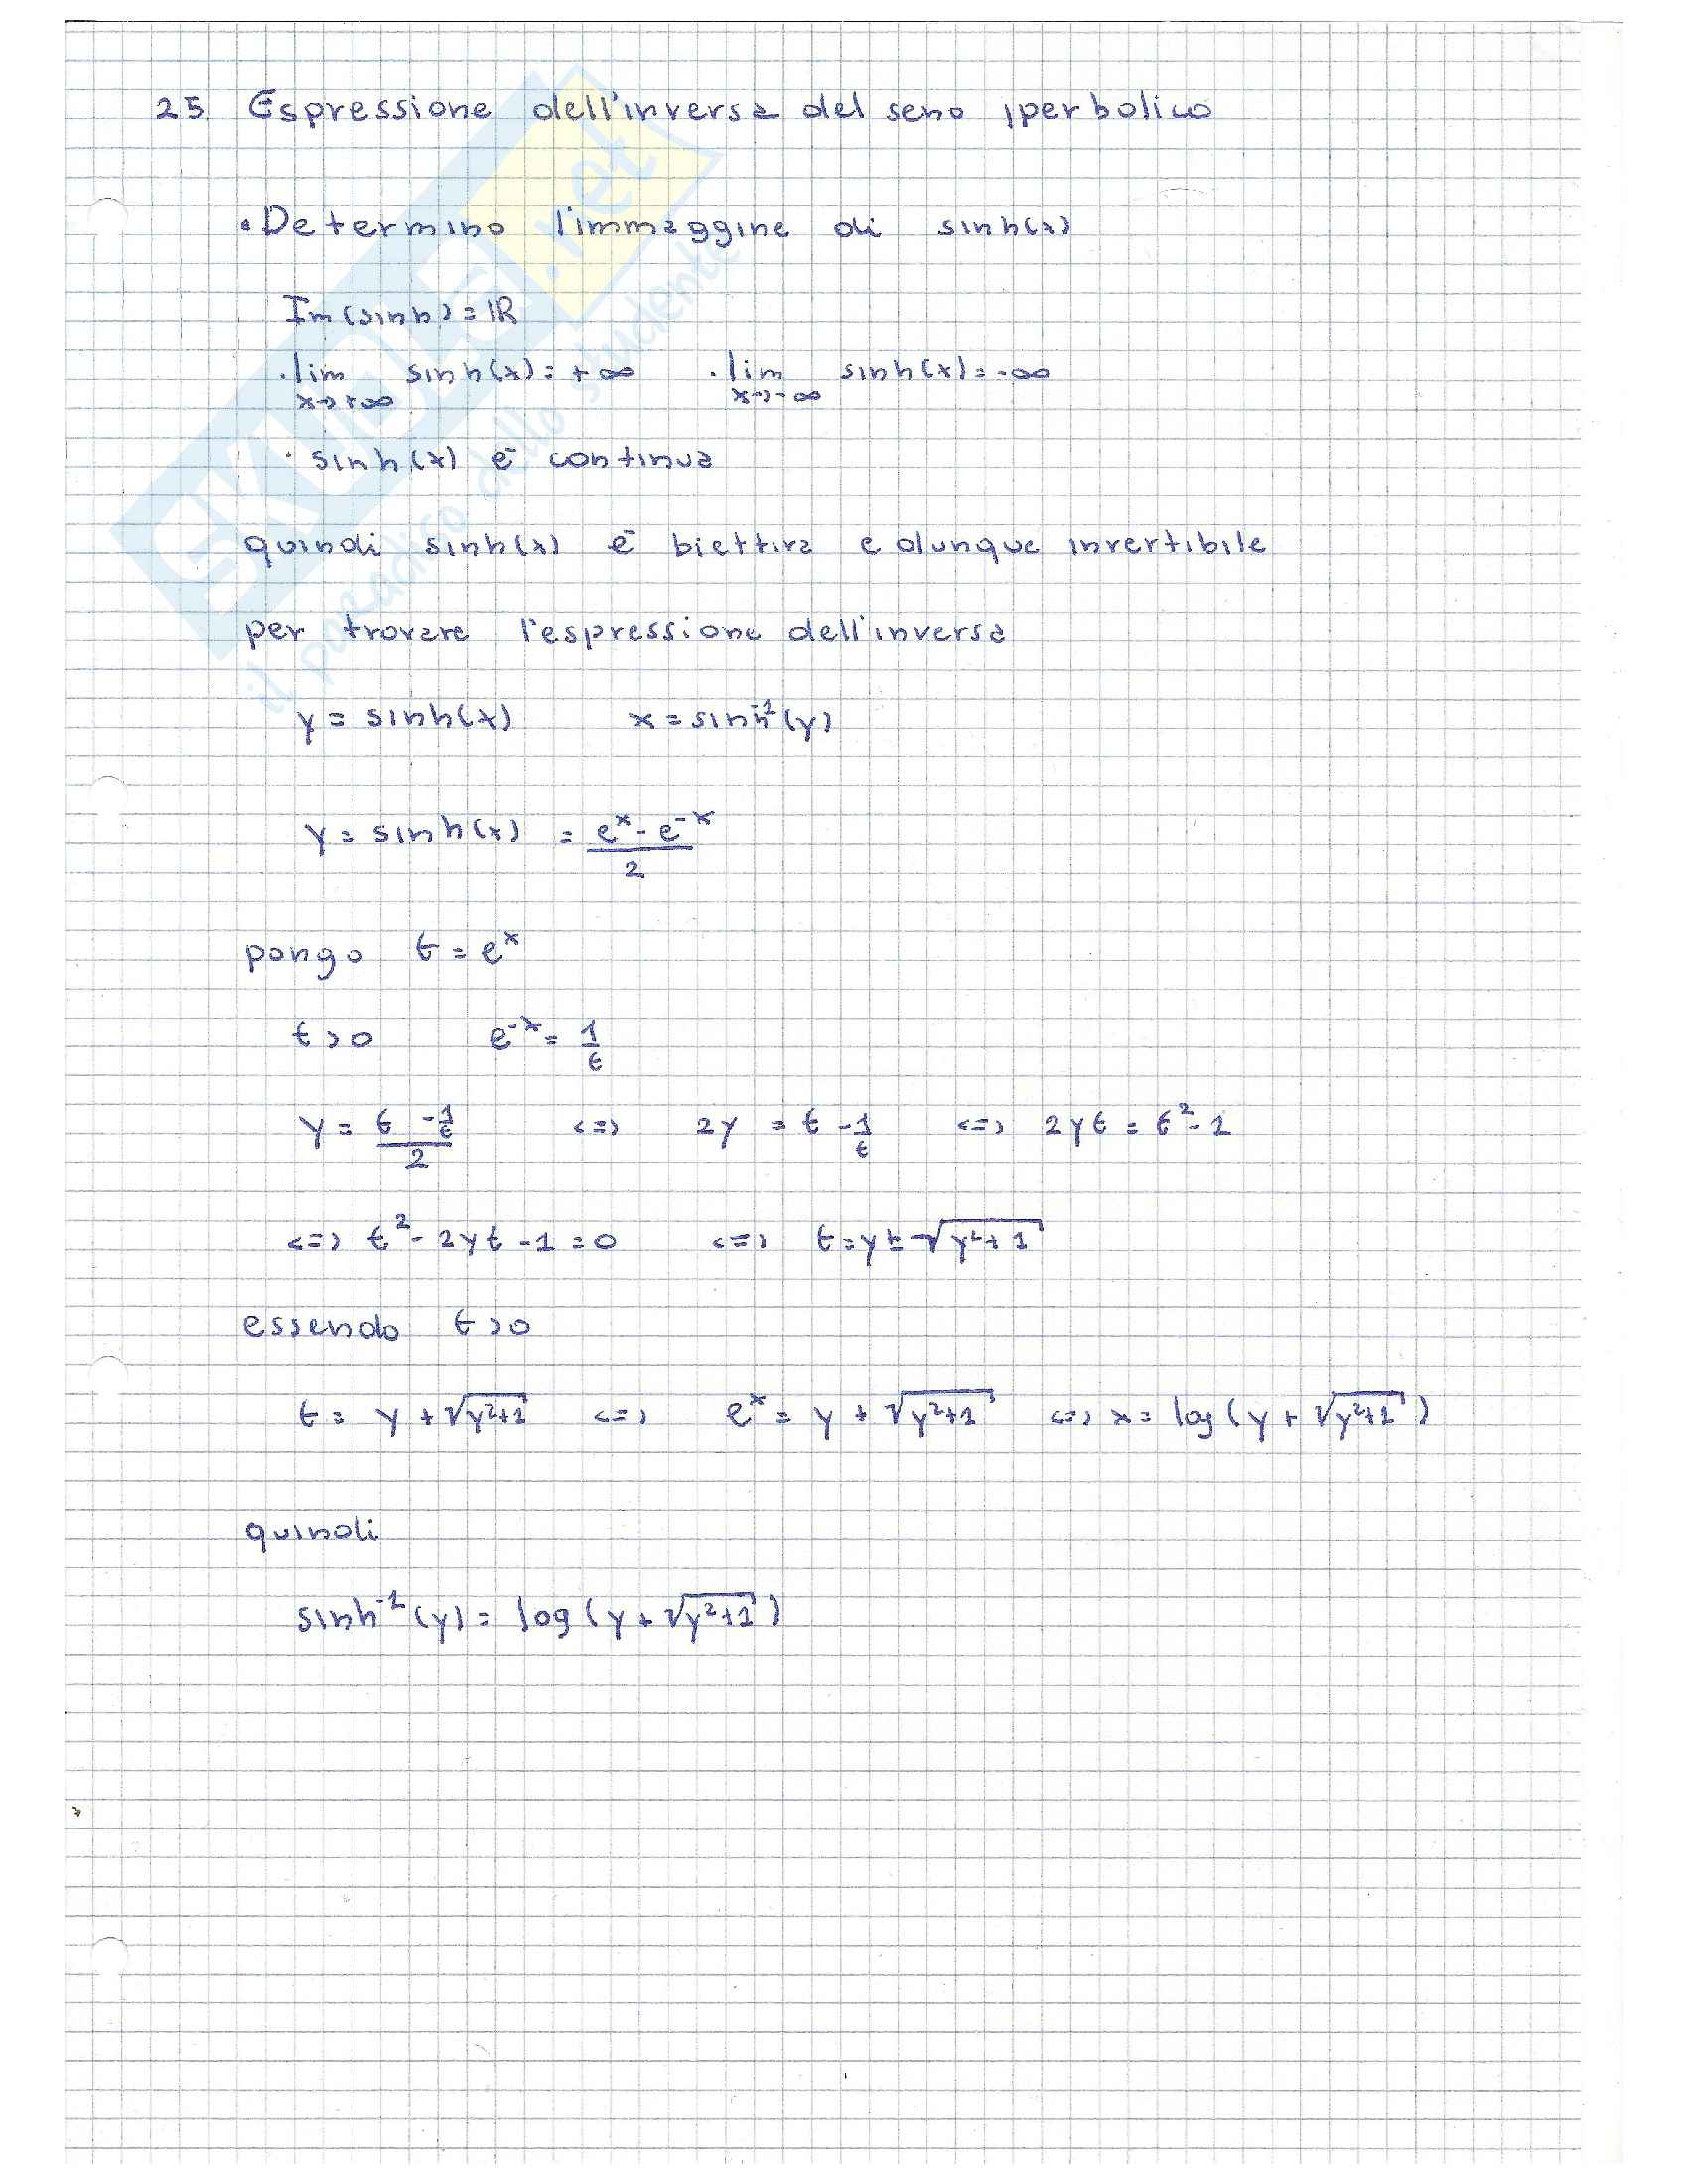 25 Espressione dell'inversa del seno iperbolico
• Determino l'immaggine di sinh(x)
Im(sinh) = ℝ
· lim x→+∞ sinh(x) = +∞ · lim x→-∞ sinh(x) = -∞
· sinh(x) è continua
quindi sinh(x) è biettiva e dunque invertibile
per trovare l'espressione dell'inversa
y = sinh(x) x = sinh⁻¹(y)
y = sinh(x) = (eˣ - e⁻ˣ)/2
pongo t = eˣ
t > 0 e⁻ˣ = 1/t
y = (t - 1/t)/2 <=> 2y = t - 1/t <=> 2yt = t² - 1
<=> t² - 2yt - 1 = 0 <=> t = y ± √(y² + 1)
essendo t > 0
t = y + √(y²+1) <=> eˣ = y + √(y²+1) <=> x = log(y + √(y²+1))
quindi
sinh⁻¹(y) = log(y + √(y²+1))
SKUOLA.net
il paradiso dello studente